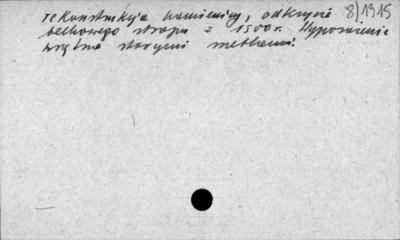 rekonstrukcja kamienicy, odkrycie 8/1915
belkowego stropu z 1500 r. Wyposażenie
wnętrz starymi meblami.